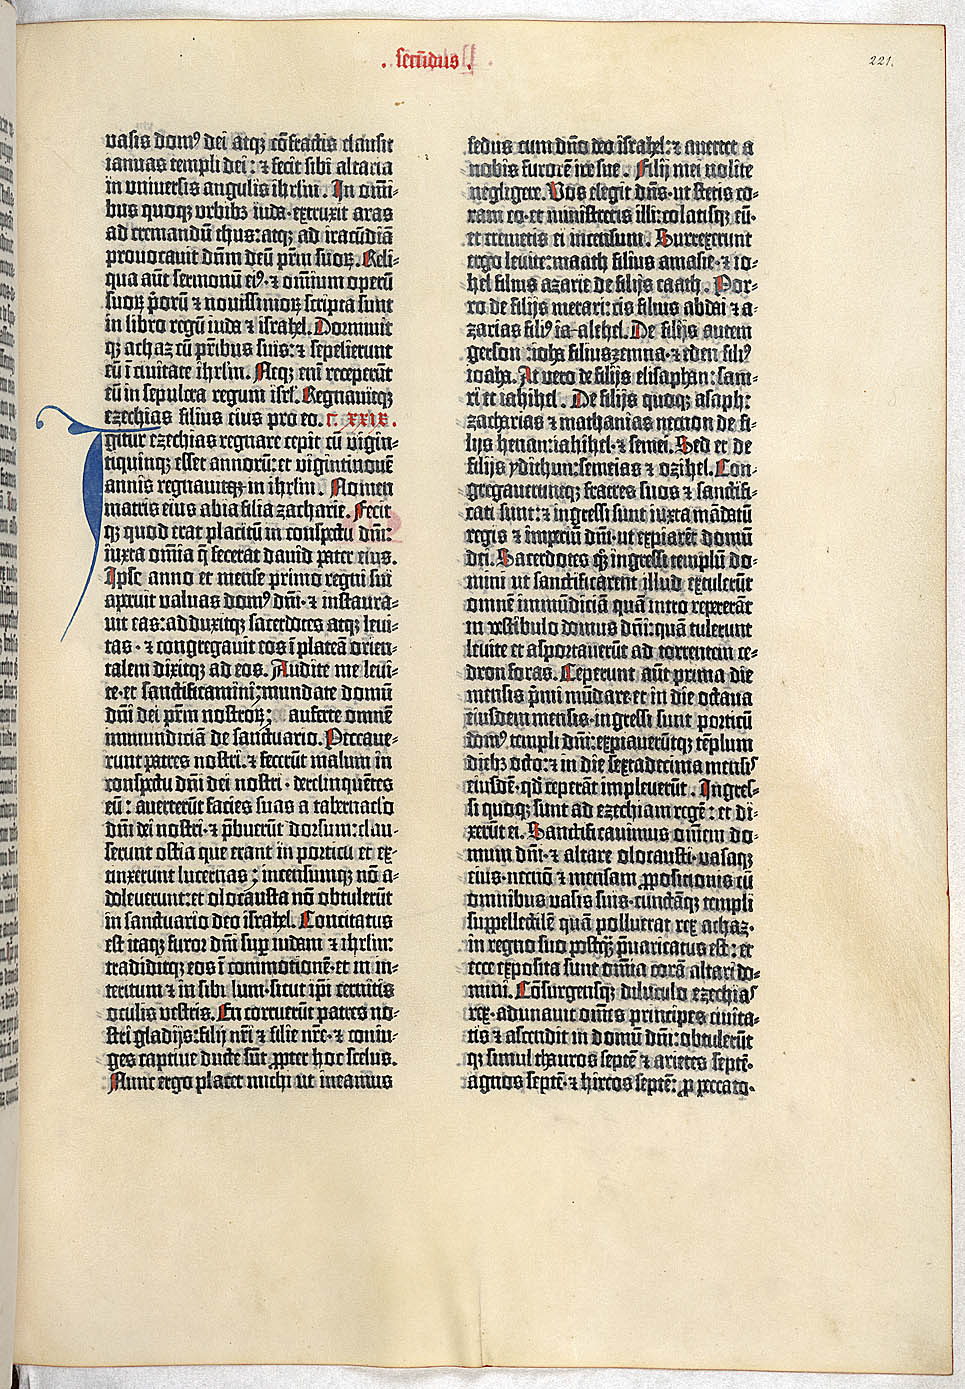 . secūdus .
221.
uasis domꝰ dei atqꝫ cōfractis clausit
ianuas templi dei : ⁊ fecit sibi altaria
in uniuersis angulis ihrlm̄. In om̄i-
bus quoqꝫ vrbibꝫ iuda · extruxit aras
ad cremandū thus : atqꝫ ad iracūdiā
prouocauit dn̄m deū pr̄m suoꝝ. Reli-
qua aūt sermonū eiꝰ · ⁊ om̄ium operū
suoꝝ p̄orū ⁊ nouissimoꝝ scripta sunt
in libro regū iuda ⁊ israhel. Dormiuit
qꝫ achaz cū pr̄ibus suis : ⁊ sepelierunt
eū ī ciuitate ihrlm̄. Neqꝫ eni receperūt
eū in sepulcra regum isrl̄. Regnauitqꝫ
ezechias filius eius pro eo. c. xxix.
Igitur ezechias regnare cepit cū vigin-
tiquinqꝫ esset annorū : et vigintinouē
annis regnauitqꝫ in ihrlm̄. Nomen
matris eius abia filia zacharie. Fecit
qꝫ quod erat placitū in conspectu dn̄i :
iuxta om̄ia q̄ fecerat dauid pater eius.
Ipse anno et mense primo regni sui
aperuit ualuas domꝰ dn̄i · ⁊ instaura-
uit eas : adduxitqꝫ sacerdotes atqꝫ leui-
tas · ⁊ congregauit eos ī plateā orien-
talem dixitqꝫ ad eos. Audite me leui-
te · et sanctificamini : mundate domū
dn̄i dei pr̄m nostroꝝ : auferte omnē
immundiciā de sanctuario. Peccaue-
runt patres nostri · ⁊ fecerūt malum in
conspectu dn̄i dei nostri · derelinquētes
eū : auerterūt facies suas a tabernaclo
dn̄i dei nostri · ⁊ p̄buerūt dorsum : clau-
serunt ostia que erant in porticu et ex-
tinxerunt lucernas ; incensumqꝫ nō a-
doleuerunt : et olocausta nō obtulerūt
in sanctuario deo israhel. Concitatus
est itaqꝫ furor dn̄i suꝑ iudam ⁊ ihrlm̄ :
tradiditqꝫ eos ī commotionē · et in in-
teritum ⁊ in sibilum · sicut ip̄i cernitis
oculis vestris. En corruerūt patres no-
stri gladijs : filij nr̄i ⁊ filie nr̄e · ⁊ coniu-
ges captiue ducte sūt ꝓpter hoc scelus.
Nunc ergo placet michi ut ineamus
fedus cum dn̄o deo israhel : ⁊ auertet a
nobis furorē ire sue. Filij mei nolite
negligere. Vos elegit dn̄s · ut stetis co-
ram eo · et ministretis illi : colatisqꝫ eū ·
et cremetis ei incensum. Surrexerunt
ergo leuite : maath filius amasie · ⁊ io-
hel filius azarie de filijs caath. Por-
ro de filijs merari : cis filius abdai ⁊ a-
zarias filiꝰ ia-alehel. De filijs autem
gerson : ioha filius zemna · ⁊ eden filiꝰ
ioaha. At vero de filijs elisaphan : sam-
ri et iahihel. De filijs quoqꝫ asaph :
zacharias ⁊ mathanias necnon de fi-
lijs heman : iahihel · ⁊ semei. Sed et de
filijs ydithun : semeias ⁊ ozihel. Con-
gregaueruntqꝫ fratres suos ⁊ sanctifi-
cati sunt : ⁊ ingressi sunt iuxta mādatū
regis ⁊ imperiū dn̄i · ut expiarēt domū
dei. Sacerdotes qꝫ ingressi templū do-
mini ut sanctificarent illud extulerūt
omnē immūdiciā quā intro repererāt
in vestibulo domus dn̄i : quā tulerunt
leuite et asportauerūt ad torrentem ce-
dron foras. Ceperunt aūt prima die
mensis p̄mi mūdare · et in die octaua
eiusdem mensis · ingressi sunt porticū
domꝰ templi dn̄i : expiauerūtqꝫ tēplum
diebꝫ octo : ⁊ in die sextadecima mensis
eiusdē · qd̄ ceperāt impleuerūt. Ingres-
si quoqꝫ sunt ad ezechiam regē : et di-
xerūt ei. Sanctificauimus om̄em do-
mum dn̄i · ⁊ altare olocausti · uasaqꝫ
eius · necnō ⁊ mensam ꝓpositionis cū
omnibus vasis suis · cunctāqꝫ templi
suppellectilē quā polluerat rex achaz ·
in regno suo postqꝫ p̄uaricatus est : et
ecce exposita sunt om̄ia corā altari do-
mini. Cōsurgensqꝫ diluculo ezechias
rex · adunauit om̄es principes ciuita-
tis ⁊ ascendit in domū dn̄i : obtulerūt
qꝫ simul thauros septē ⁊ arietes septē ·
agnos septē · ⁊ hircos septē : ꝓ peccato ·